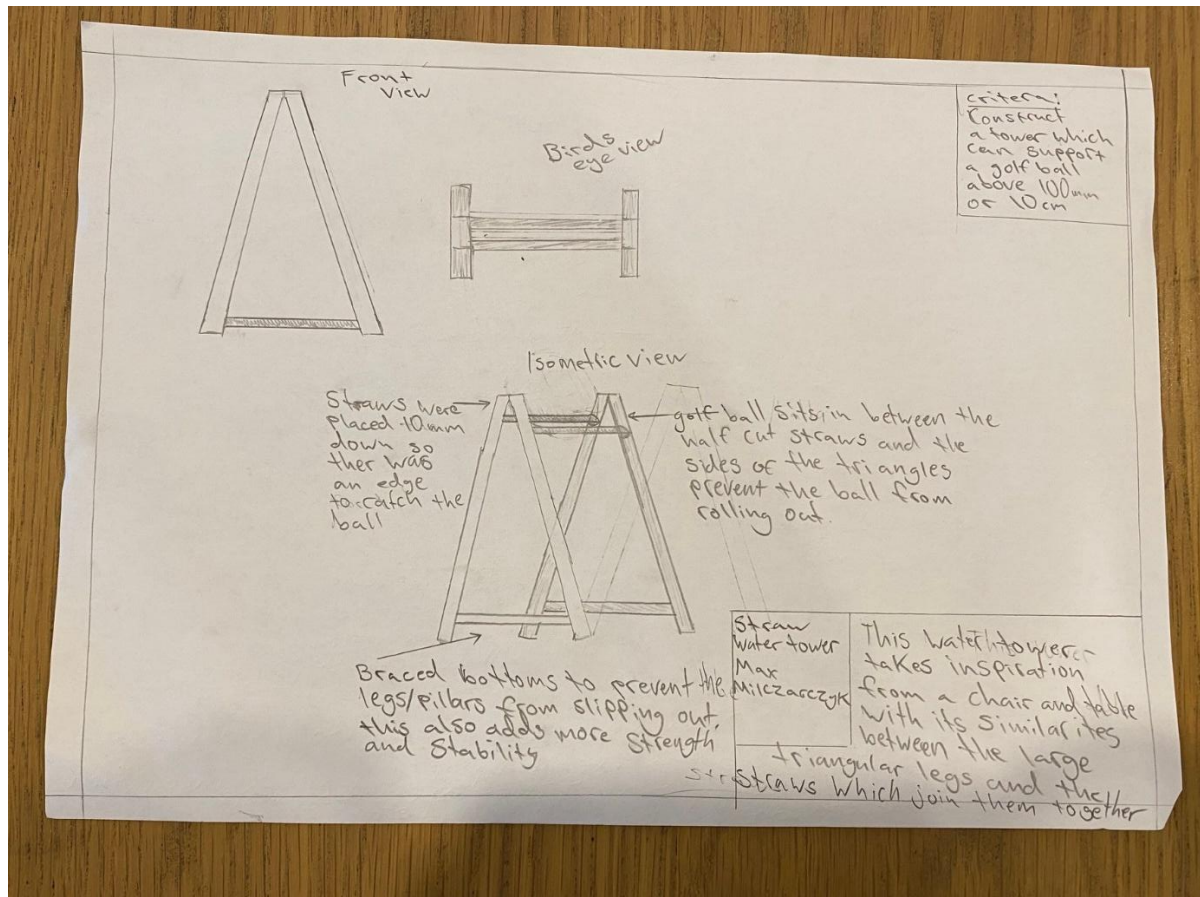 Front
View
Birds
eye view
critera:
Construct
a tower which
can support
a golf ball
above 100mm
or 10cm
Isometric view
Straws were
placed 10mm
down so
ther was
an edge
to catch the
ball
golf ball sits in between the
half cut straws and the
sides of the triangles
prevent the ball from
rolling out.
Braced bottoms to prevent the
legs/pillars from slipping out,
this also adds more strength
and Stability
Straw
water tower
Max
Milczarczyk
This water tower
takes inspiration
from a chair and table
with its similarites
between the large
triangular legs and the
straws which join them together